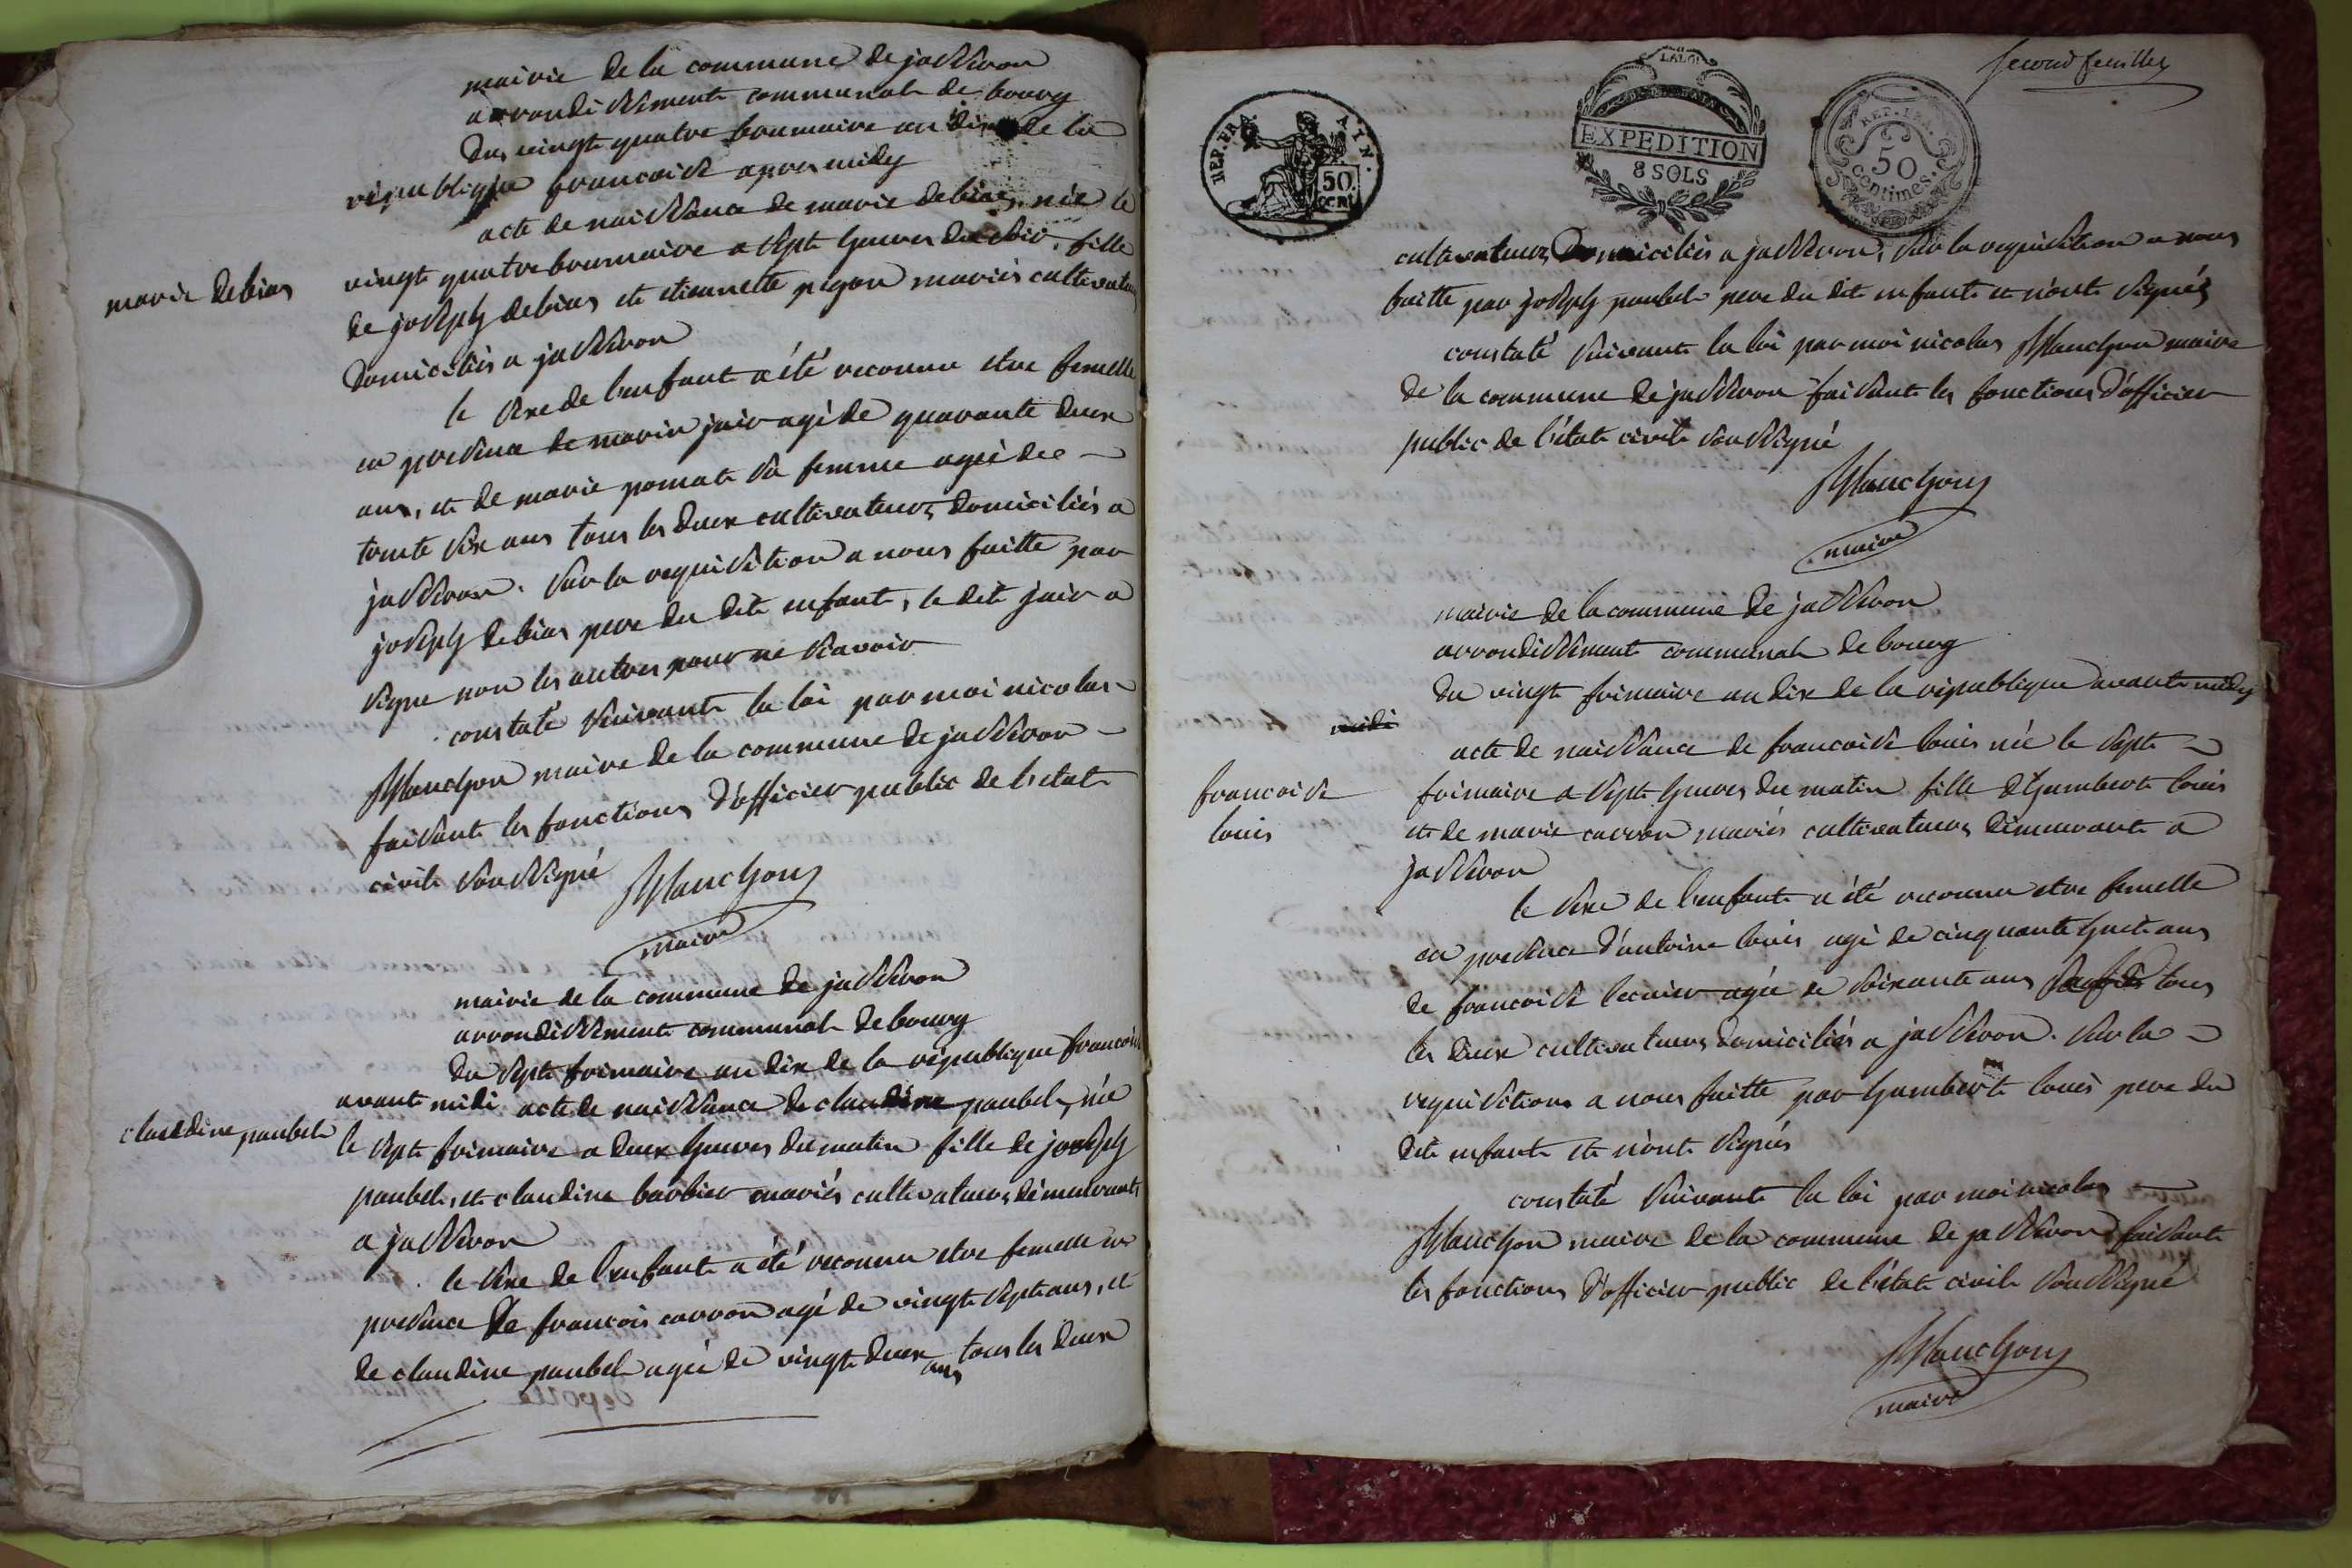 mairie de la commune de jasseron
arrondissement communal de bourg
du vingt quatre brumaire an dix de la
république francoise apres midy
acte de naissance de marie debias née le
marie debias
vingt quatre brumaire a sept heures du soir, fille
de joseph debias et etiennette pigon mariés cultivateurs
domiciliés a jasseron
le sexe de lenfant a été reconnu etre femelle
en presence de marin jair agé de quarante deux
ans, et de marie pomat sa femme agée de
trente six ans tous les deux cultivateurs domiciliés a
jasseron. sur la requisition a nous faitte par
joseph debias pere du dit enfant, le dit jair a
signe non les autres pour ne scavoir
constaté suivant la loi par moi nicolas
manchon maire de la commune de jasseron
faisant les fonctions d'officier public de l'etat
civil soussigné
maire
mairie de la commune de jasseron
arrondissement communal de bourg
du sept frimaire an dix de la république francoise
avant midi acte de naissance de claudine paubel, née
claudine paubel
le sept frimaire a deux heures du matin fille de joseph
paubel, et claudine barbier mariés cultivateurs démeurants
a jasseron
le sexe de lenfant a été reconnu etre femelle en
presence de francois carron agé de vingt sept ans, et
de claudine paubel agée de vingt deux ans tous les deux
second feuillet
REP. FRA. AIN.
50 CEN.
LA LOI
EXPEDITION
8 SOLS
REP. FRA.
50
centimes.
cultivateurs domiciliés a jasseron, sur la requisition a nous
faitte par joseph paubel pere du dit enfant et n'ont signés
constaté suivant la loi par moi nicolas manchon maire
de la commune de jasseron faisant les fonctions d'officier
public de l'état civil soussigné
maire
mairie de la commune de jasseron
arrondissement communal de bourg
du vingt frimaire an dix de la république avant midy
midi
acte de naissance de francoise louis née le sept
francoise
louis
frimaire a sept heures du matin fille d'humbert louis
et de marie carron mariés cultivateurs démeurant a
jasseron
le sexe de l'enfant a été reconnu etre femelle
en presence d'antoine louis agé de cinquante huit ans
de francoise lecuier agée de soixante ans tous
les deux cultivateurs domiciliés a jasseron. sur la
requisition a nous faitte par humbert louis pere du
dit enfant et n'ont signés
constaté suivant la loi par moi nicolas
manchon maire de la commune de jasseron faisant
les fonctions d'officier public de l'état civil soussigné
maire